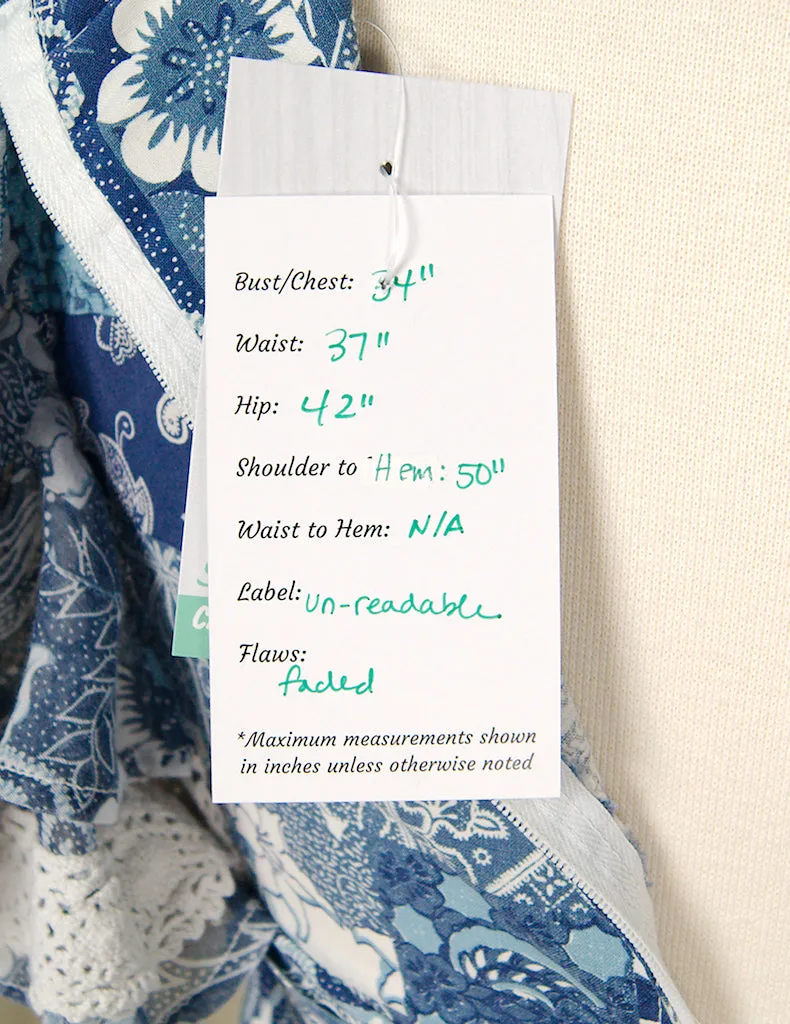 Bust/Chest: 34"
Waist: 37"
Hip: 42"
Shoulder to Hem: 50"
Waist to Hem: N/A
Label: un-readable.
Flaws:
faded
*Maximum measurements shown
in inches unless otherwise noted